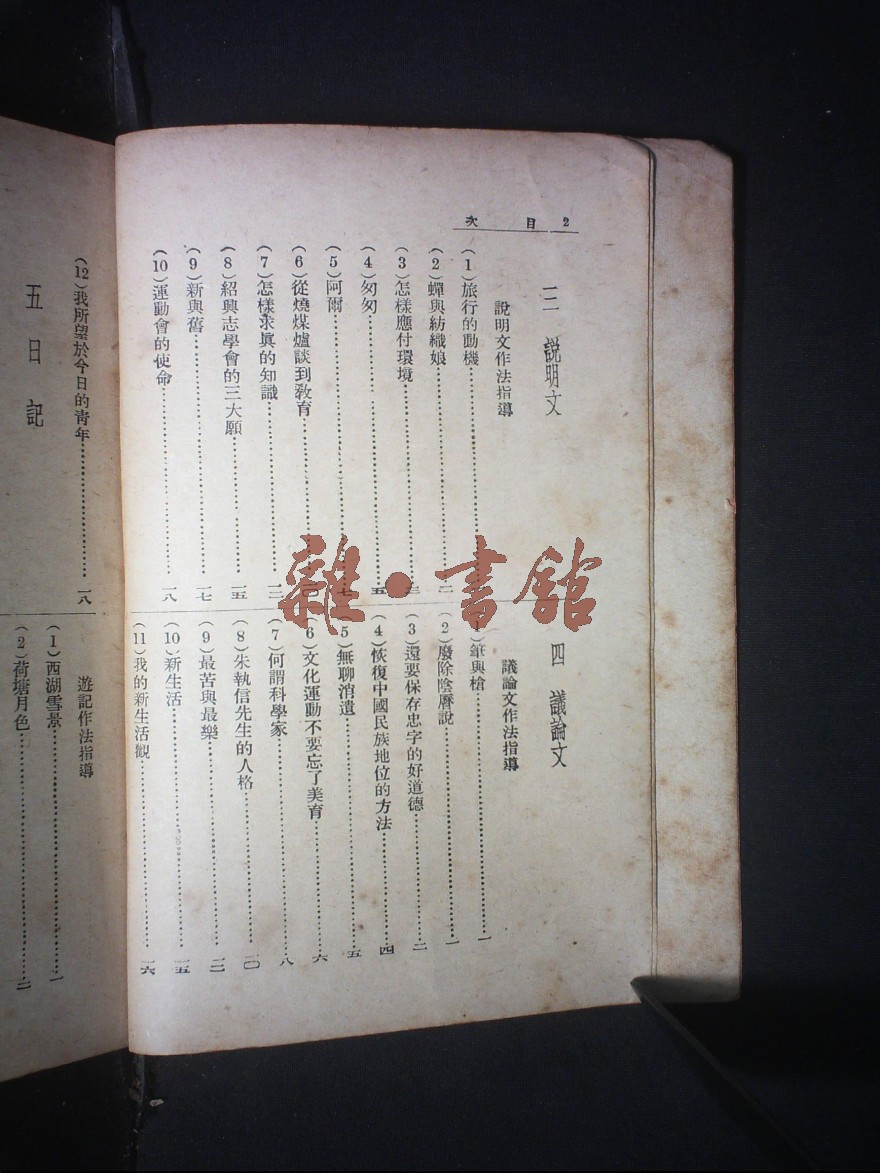 2 目 次
三 說明文
說明文作法指導
(1)旅行的動機
(2)蟬與紡織娘……二
(3)怎樣應付環境……三
(4)匆匆……五
(5)阿爾……七
(6)從燒煤爐談到敎育
(7)怎樣求眞的知識……一二
(8)紹興志學會的三大願……一五
(9)新與舊……一七
(10)運動會的使命……一八
四 議論文
議論文作法指導
(1)筆與槍……一
(2)廢除陰曆說……一
(3)還要保存忠字的好道德……二
(4)恢復中國民族地位的方法……四
(5)無聊消遣……五
(6)文化運動不要忘了美育……六
(7)何謂科學家……八
(8)朱執信先生的人格……一〇
(9)最苦與最樂……一二
(10)新生活……一五
(11)我的新生活觀……一六
(12)我所望於今日的靑年……一八
五 日記
遊記作法指導
(1)西湖雪景……一
(2)荷塘月色……二
雜·書館